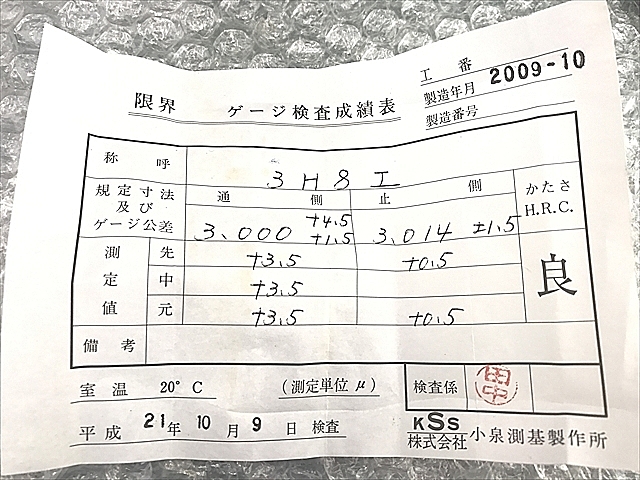 限界 ゲージ検査成績表
工番
製造年月 2009-10
製造番号
称呼 3H8 工
規定寸法及びゲージ公差 通側 止側 かたさ H.R.C.
3.000 +4.5 +1.5 3.014 ±1.5
測定値 先 +3.5 +0.5 良
中 +3.5
元 +3.5 +0.5
備考
室温 20°C (測定単位 μ) 検査係 田中
平成 21年 10月 9日 検査
KSS
株式会社 小泉測基製作所